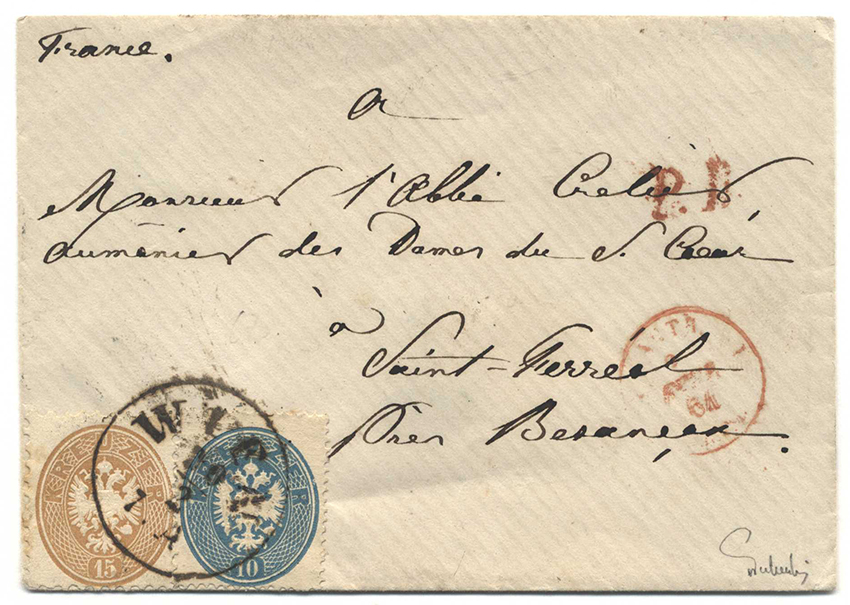 France.
a
Monsieur l'Abbé Crelier
P.D
aumônier des Dames du S. Cœur
à
Saint-Ferréol
près Besançon.
64
WIEN
KREUZER
15
KREUZER
10